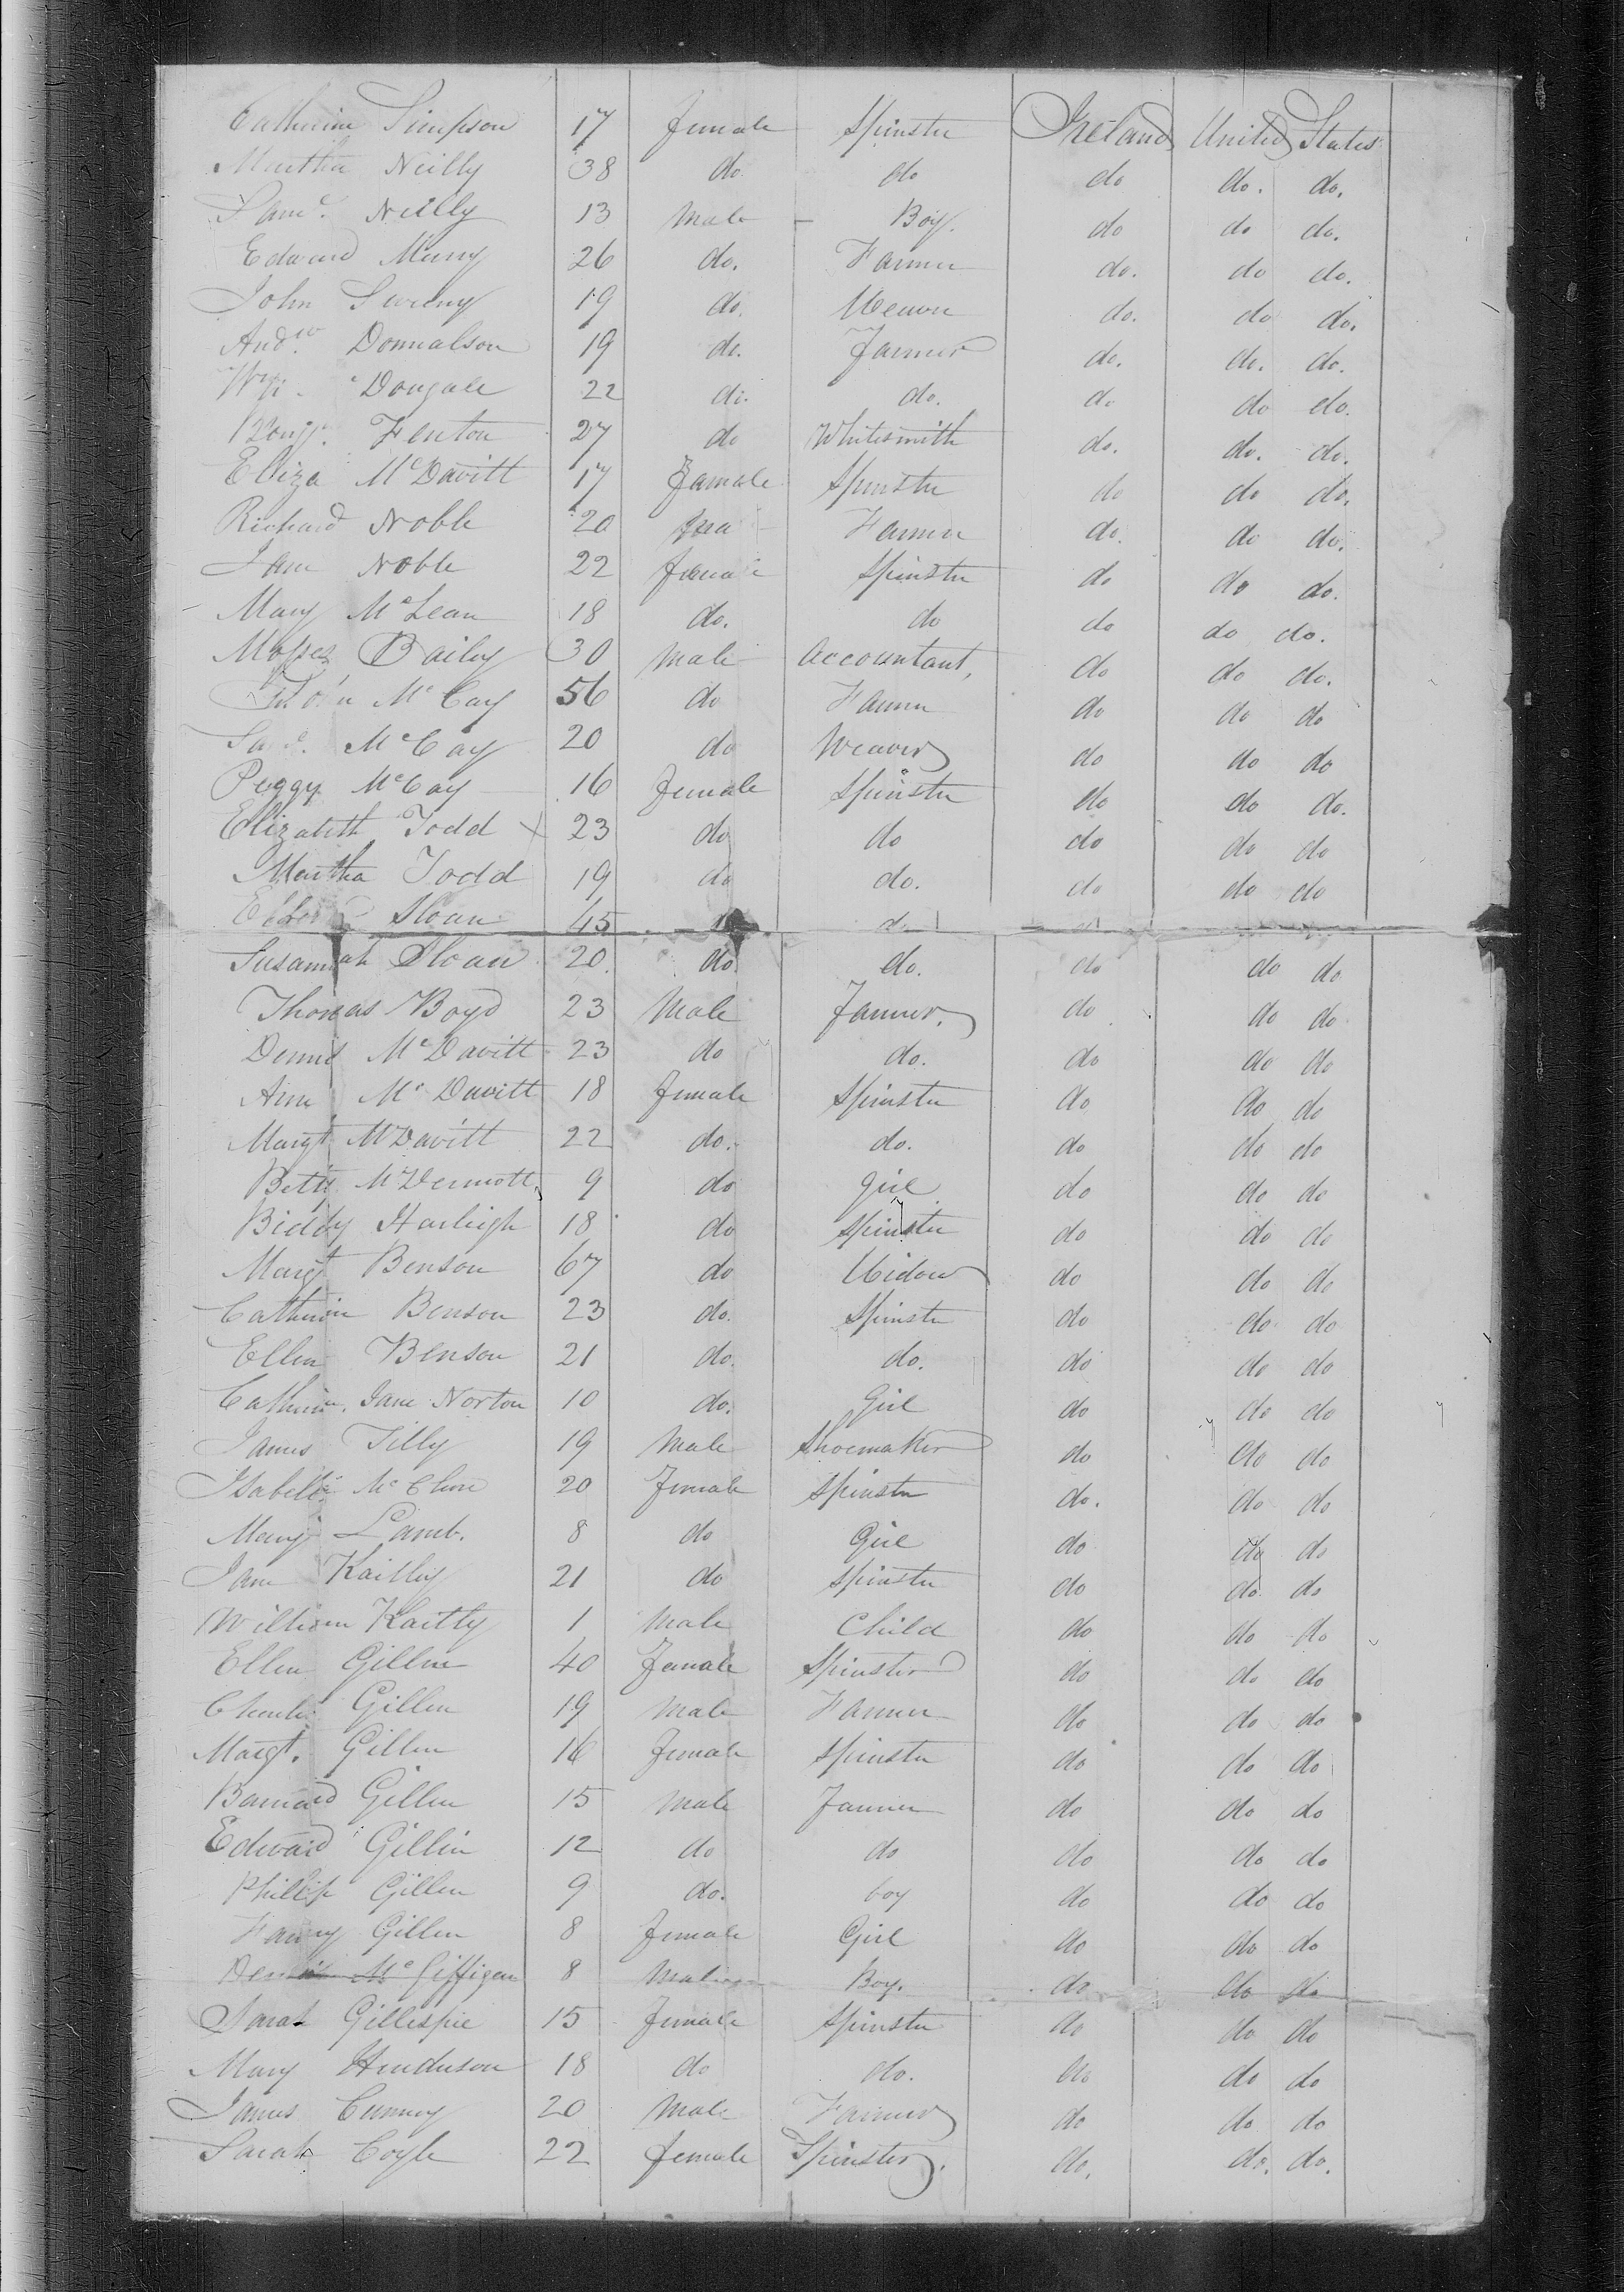 Catherine Simpson 17 female Spinster Ireland United States
Martha Neilly 38 do do do do. do.
Saml. Neilly 13 Male — Boy. do do do.
Edward Murry 26 do. Farmer do. do do.
John Sweeny 19 do. Weaver do. do do.
Andw. Donnalson 19 do. Farmer do. do. do.
Wm. Dougale 22 do. do. do do do.
Fenton 27 do Whitesmith do. do. do.
Eliza McDavitt 17 Famale Spinster do do do.
Richard Noble 20 Farmer do. do do.
Jane Noble 22 female Spinster do do do.
Mary McLean 18 do. do do do do.
Mosses Baily 30 Male Accountant, do do do.
John McCay 56 do Farmer do do do
McCay 20 do Weaver do do do
Peggy McCay 16 female Spinster do do do.
Elizabeth Todd x 23 do do do do do
Martha Todd 19 do do. do do do
Sloan 45 do
Susannah Sloan 20. do. do. do do do
Thomas Boyd 23 Male Farmer. do do do
Dennis McDavitt 23 do do. do do do
Ann McDavitt 18 female Spinster do do do
Margt McDavitt 22 do. do. do do do
Betty McDermott 9 do girl do do do
Biddy Harleigh 18 do Spinster do do do
Margt Benson 67 do Widow do do do
Catherine Benson 23 do. Spinster do do do
Ellen Benson 21 do. do. do do do
Catherine Jane Norton 10 do. Girl do do do
James Tilly 19 Male Shoemaker do do do
Isabella McClure 20 Female Spinster do. do do
Mary Lamb. 8 do Girl do do do
Jane Kailly 21 do Spinster do do do
William Kailly 1 Male Child do do do
Ellen Gillen 40 Female Spinster do do do
Charles Gillen 19 Male Farmer do do do
Margt. Gillen 16 female Spinster do do do
Barnard Gillen 15 Male Farmer do do do
Edward Gillen 12 do do do do do
Phillip Gillen 9 do. boy do do do
Fanny Gillen 8 female Girl do do do
Dennis McGiffigan 8 Male Boy. do do do
Sarah Gillespie 15 Female Spinster do do do
Mary Henderson 18 do do. do do do
James Cunney 20 Male Farmer do do do
Sarah Coyle 22 female Spinster. do. do. do.